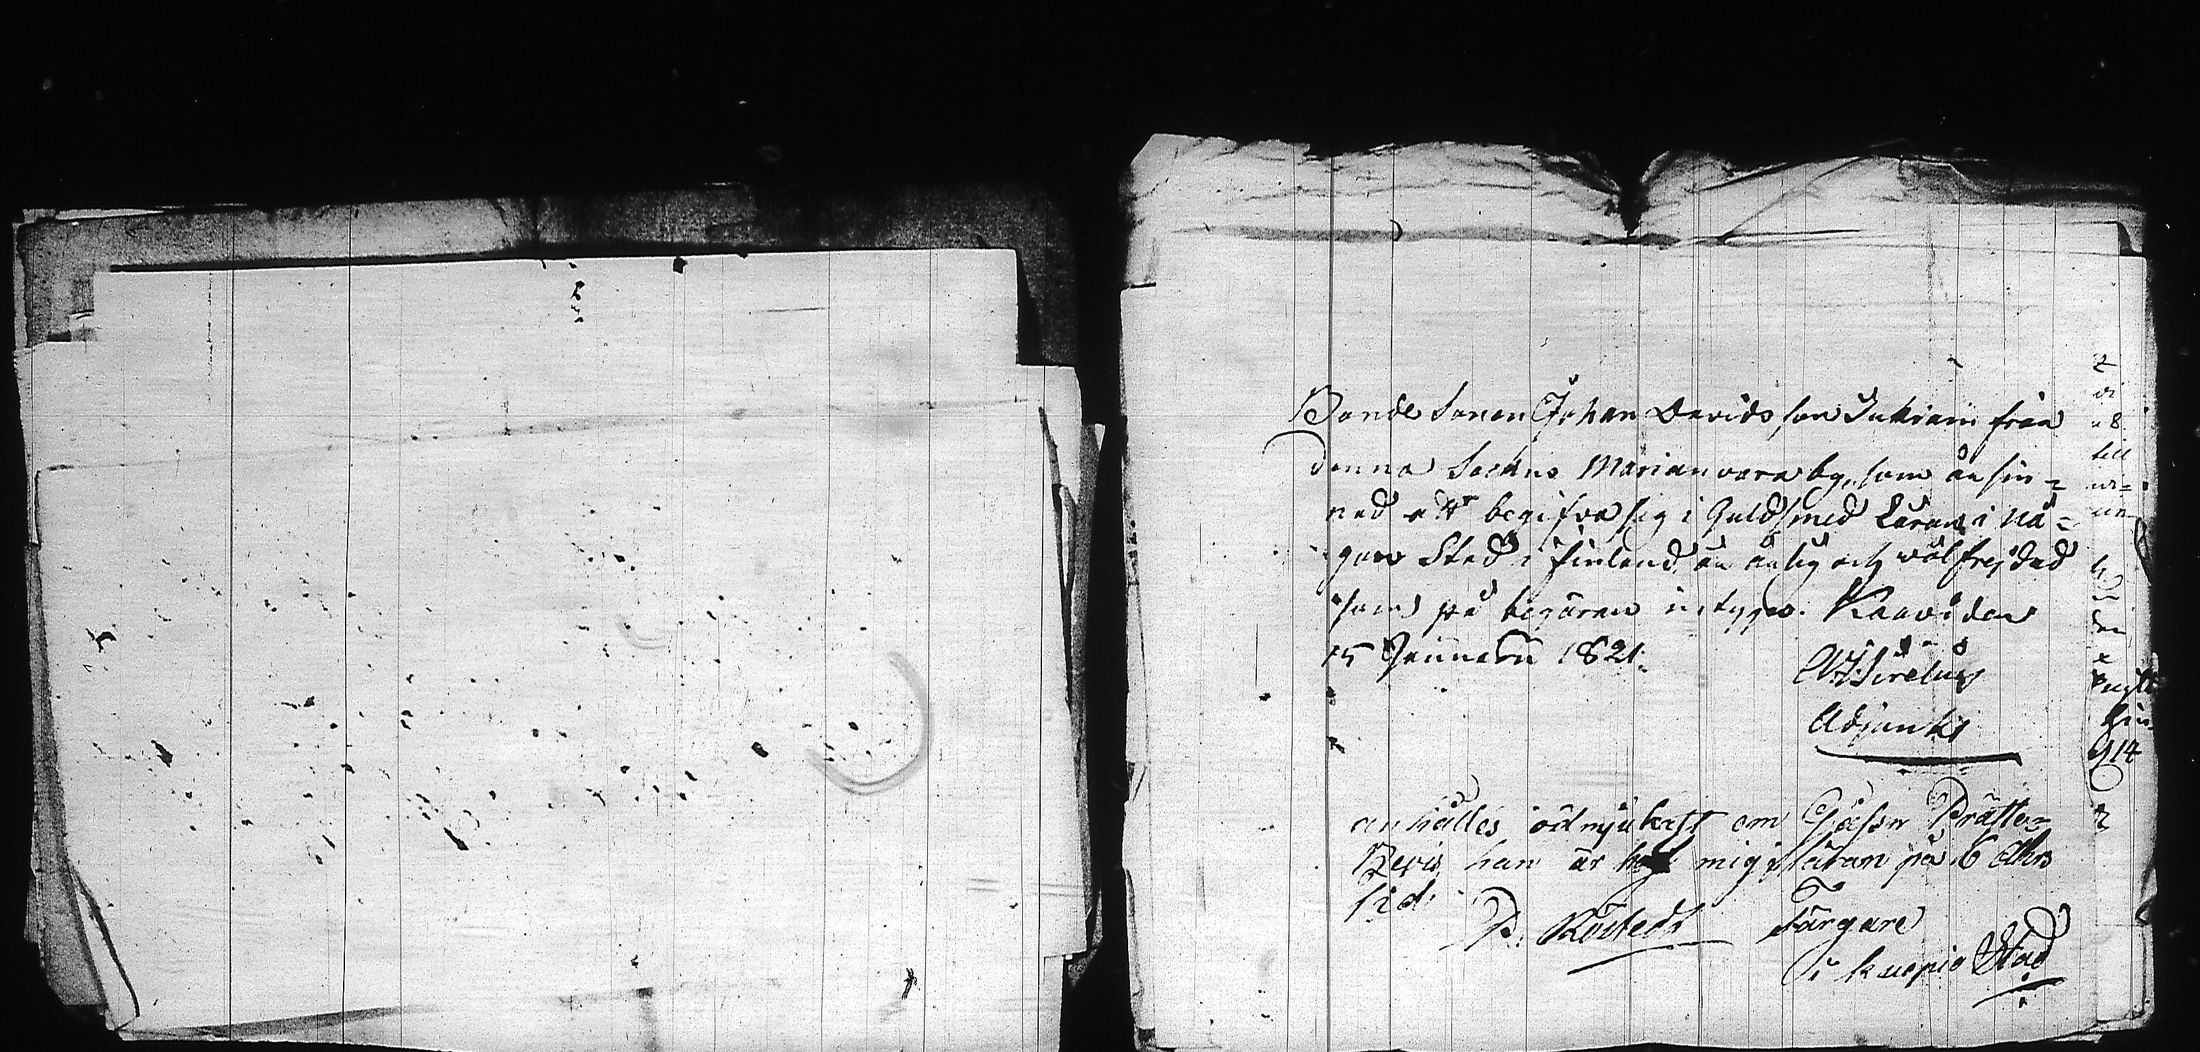 Bonde Sonen Johan Davidsson Inkinin från
denna Sockns Marianvara by, som är sin-
nad att begifva sig i Guldsmed Läran i Nå-
gon Stad i Finland, är ärlig och wälfrejdad
som på begäran intygas. Kaavi den
15 Januarii 1821.
Sirelius
Adjunkt
anhålles ödmjukast om Präste-
Bevis, han är hos mig i läran på 6 Åhrs
tid.
Färgare
i Kuopio Stad